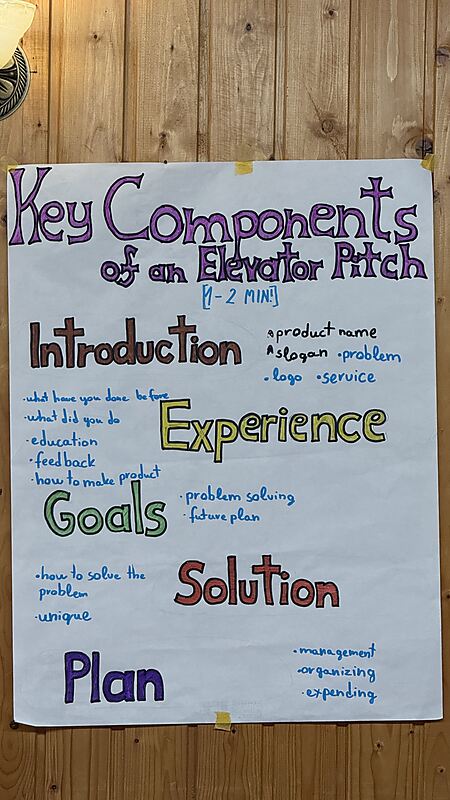 Key Components
of an Elevator Pitch
[1-2 MIN!]
Introduction
product name
slogan • problem
• logo • service
• what have you done before
• what did you do
• education
• feedback
• how to make product
Experience
Goals
• problem solving
• future plan
• how to solve the
problem
• unique
Solution
Plan
• management
• organizing
• expending